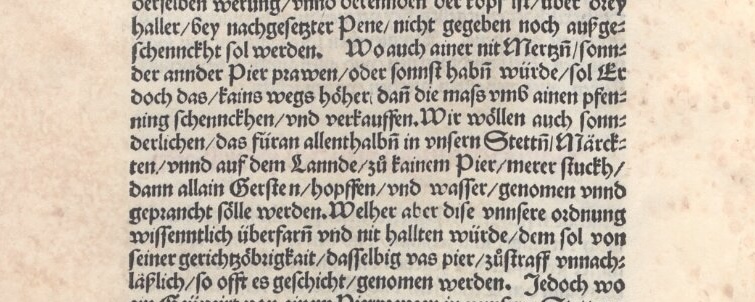 derselben werung/vnnd derennhorn der kopf ist/über drey
haller/bey nachgesetzter Pene/nicht gegeben noch außge-
schennckht sol werden. Wo auch ainer nit Mertzñ/sonn-
der annder Pier prawen/oder sonnst habñ würde/sol Er
doch das/kains wegs höher, dañ die mass vmb ainen pfen-
ning schennckhen/vnd verkauffen. Wir wöllen auch sonn-
derlichen/das füran allenthalbñ in vnsern Stettñ/Märck-
ten/vnnd auf dem Lannde/zů kainem Pier/merer stuckh/
dann allain Gersten/hopffen/vnd wasser/genomen vnnd
geprancht sölle werden. Welher aber dise vnnsere ordnung
wissenntlich überfarñ vnd nit hallten würde/dem sol von
seiner gerichtzöbrigkait/dasselbig vas pier/zůstraff vnnach-
läßlich/so offt es geschicht/genomen werden. Jedoch wo